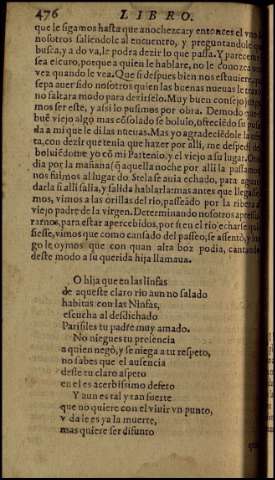 476 LIBRO.
que le sigamos hasta que anochezca: y entonces el vno
nosotros saliendole al encuentro, y preguntandole
busca, y a do va, le podra dezir lo que passa. Y
sea escuro, porque a quien le hablare, no le conozca
vez quando le vea. Que si despues bien nos estuuiere,
sepa auer sido nosotros quien las buenas nueuas le
no faltara modo para dezirselo. Muy buen consejo
mos ser este, y assi lo pusimos por obra. Demodo que
buē viejo algo mas cōsolado se boluio, ofreciēdo su
da a mi que le di las nueuas. Mas yo agradeciēdole la
ta, con dezir que tenia que hazer por alli, me despedi
boluiēdome yo cō mi Partenio, y el viejo a su lugar.
dia por la mañana (q̄ aquella noche por alli la passamos
nos fuimos al lugar do Stela se auia echado, para
darla si alli salia, y salida hablarla: mas antes que
mos, vimos a las orillas del rio, passeãdo por la ribera
viejo padre de la virgen. Determinando nosotros
rarnos, para estar apercebidos, por si en el rio echarse
siesse, vimos que como cansado del passeo, se assentò, y
go le oymos que con quan alta boz podia, cantando
deste modo a su querida hija llamaua.
O hija que en las linfas
de aqueste claro rio aun no salado
habitas con las Ninfas,
escucha al desdichado
Parisiles tu padre muy amado.
No niegues tu presencia
a quien negò, y se niega a tu respeto,
no sabes que el ausencia
deste tu claro aspeto
en el es acerbissimo defeto
Y aun es tal y tan fuerte
que no quiere con el viuir vn punto,
y dale es ya la muerte,
mas quiere ser difunto